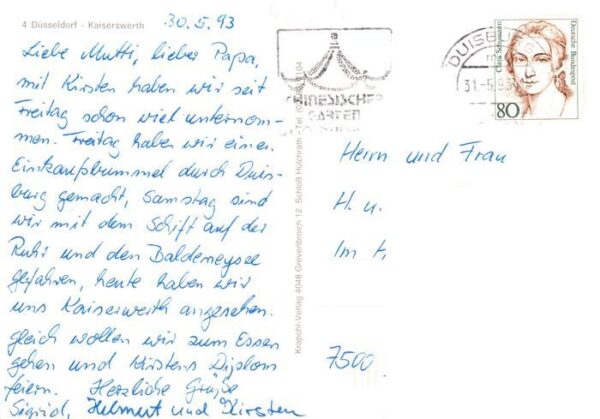 4 Düsseldorf - Kaiserswerth
30.5.93
Liebe Mutti, lieber Papa,
mit Kirsten haben wir seit
Freitag schon viel unternom-
men. Freitag haben wir einen
Einkaufsbummel durch Duis-
burg gemacht, Samstag sind
wir mit dem Schiff auf der
Ruhr und den Baldeneysee
gefahren, heute haben wir
uns Kaiserwerth angesehen.
gleich wollen wir zum Essen
gehen und Kirstens Diplom
feiern. Herzliche Grüße
Sigrid, Helmut und Kirsten
Kropohl-Verlag 4048 Grevenbroich 12. Schloß Hülchrath
CHINESISCHER
GARTEN
DUISBURG
31.-5.93
Clara Schumann
Deutsche Bundespost
80
Herrn und Frau
H. u.
Im
7500